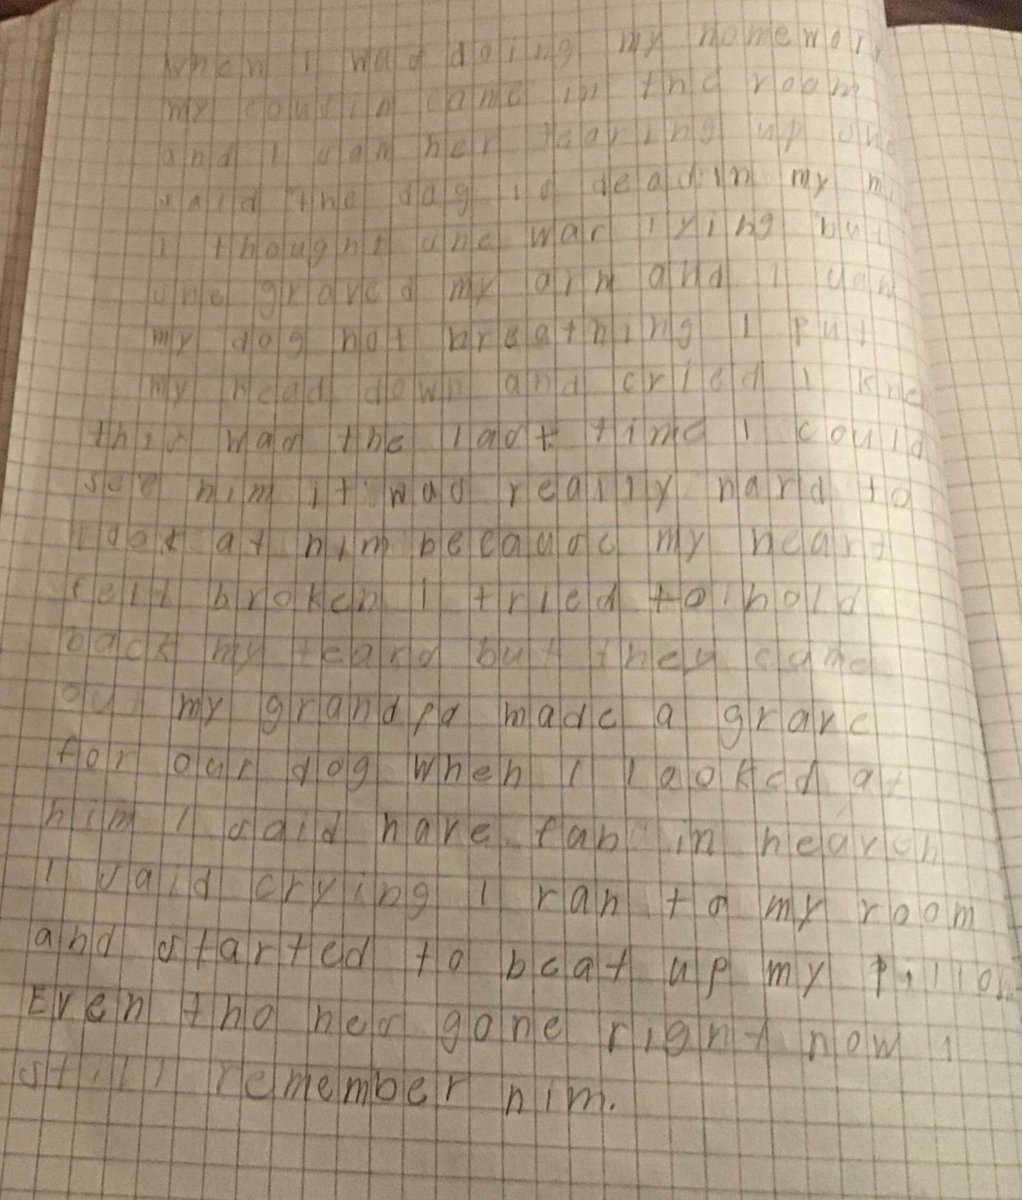 when I was doing my homework
my cousin came in the room
and I saw her tearing up she
said the dog is dead in my
I thought she was lying but
she my arm and I saw
my dog not breathing I put
my head down and cried I knew
this was the last time I could
see him it was really hard to
look at him because my heart
felt broken I tried to hold
back my tears but they came
out my grandpa made a grave
for our dog when I looked at
him I said have fun in heaven
I said crying I ran to my room
and started to beat up my pillow
Even tho hes gone right now I
still remember him.